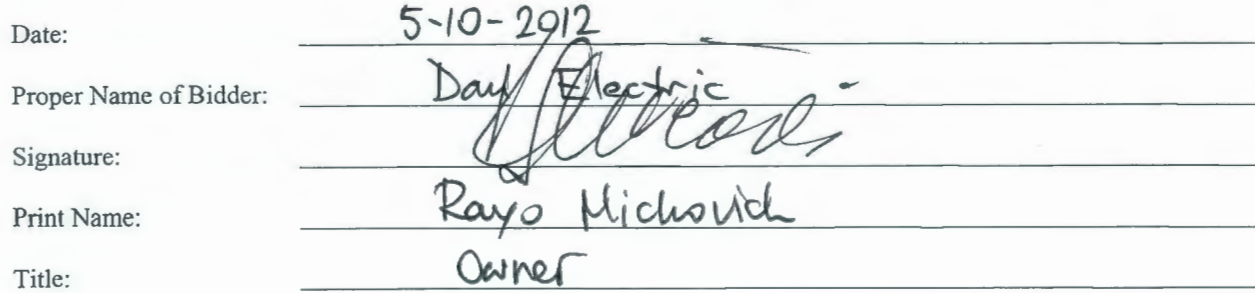 Date: 5-10-2012
Proper Name of Bidder: Day Electric
Signature:
Print Name: Rayo Mickovich
Title: Owner